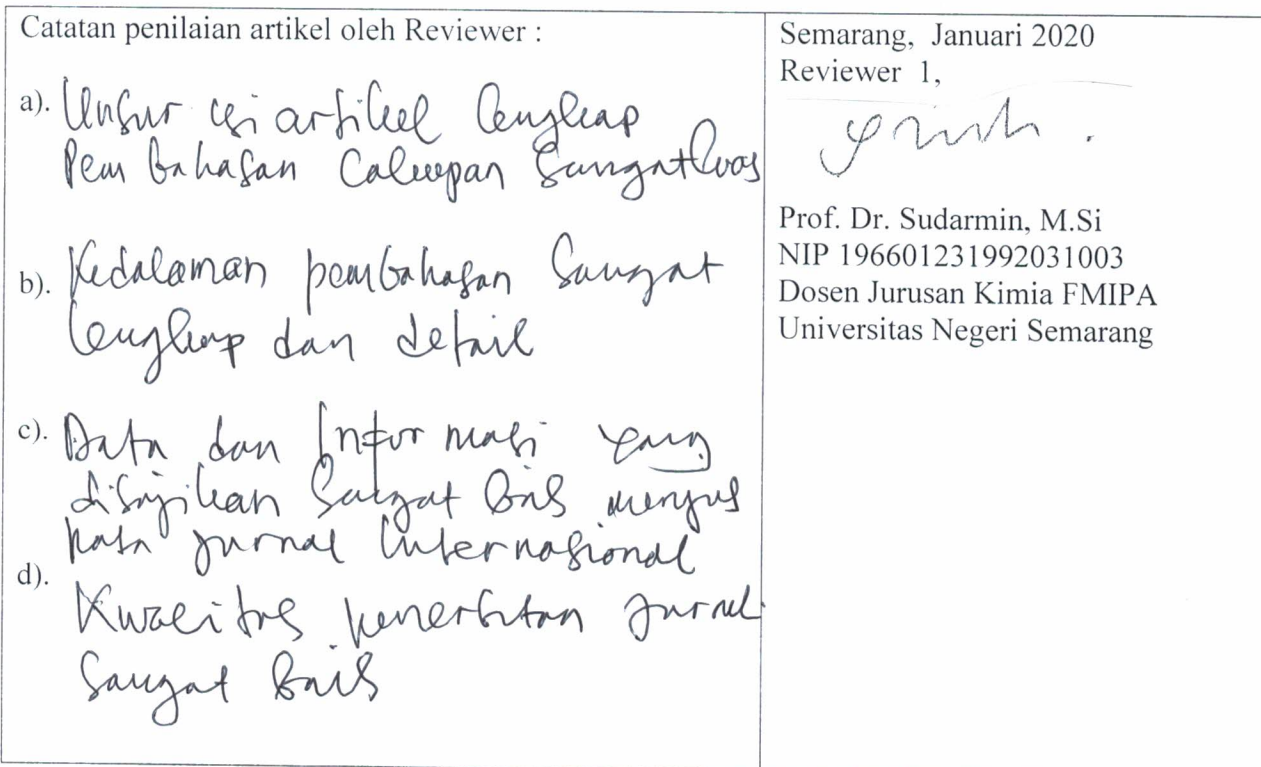 Catatan penilaian artikel oleh Reviewer :
a). Unsur isi artikel lengkap
Pembahasan Cakupan Sangat luas
b). Kedalaman pembahasan Sangat
lengkap dan detail
c). Data dan Informasi yang
disajikan Sangat Baik
Jurnal Internasional
d). Kwalitas penerbitan Jurnal
Sangat Baik
Semarang, Januari 2020
Reviewer 1,
Prof. Dr. Sudarmin, M.Si
NIP 196601231992031003
Dosen Jurusan Kimia FMIPA
Universitas Negeri Semarang